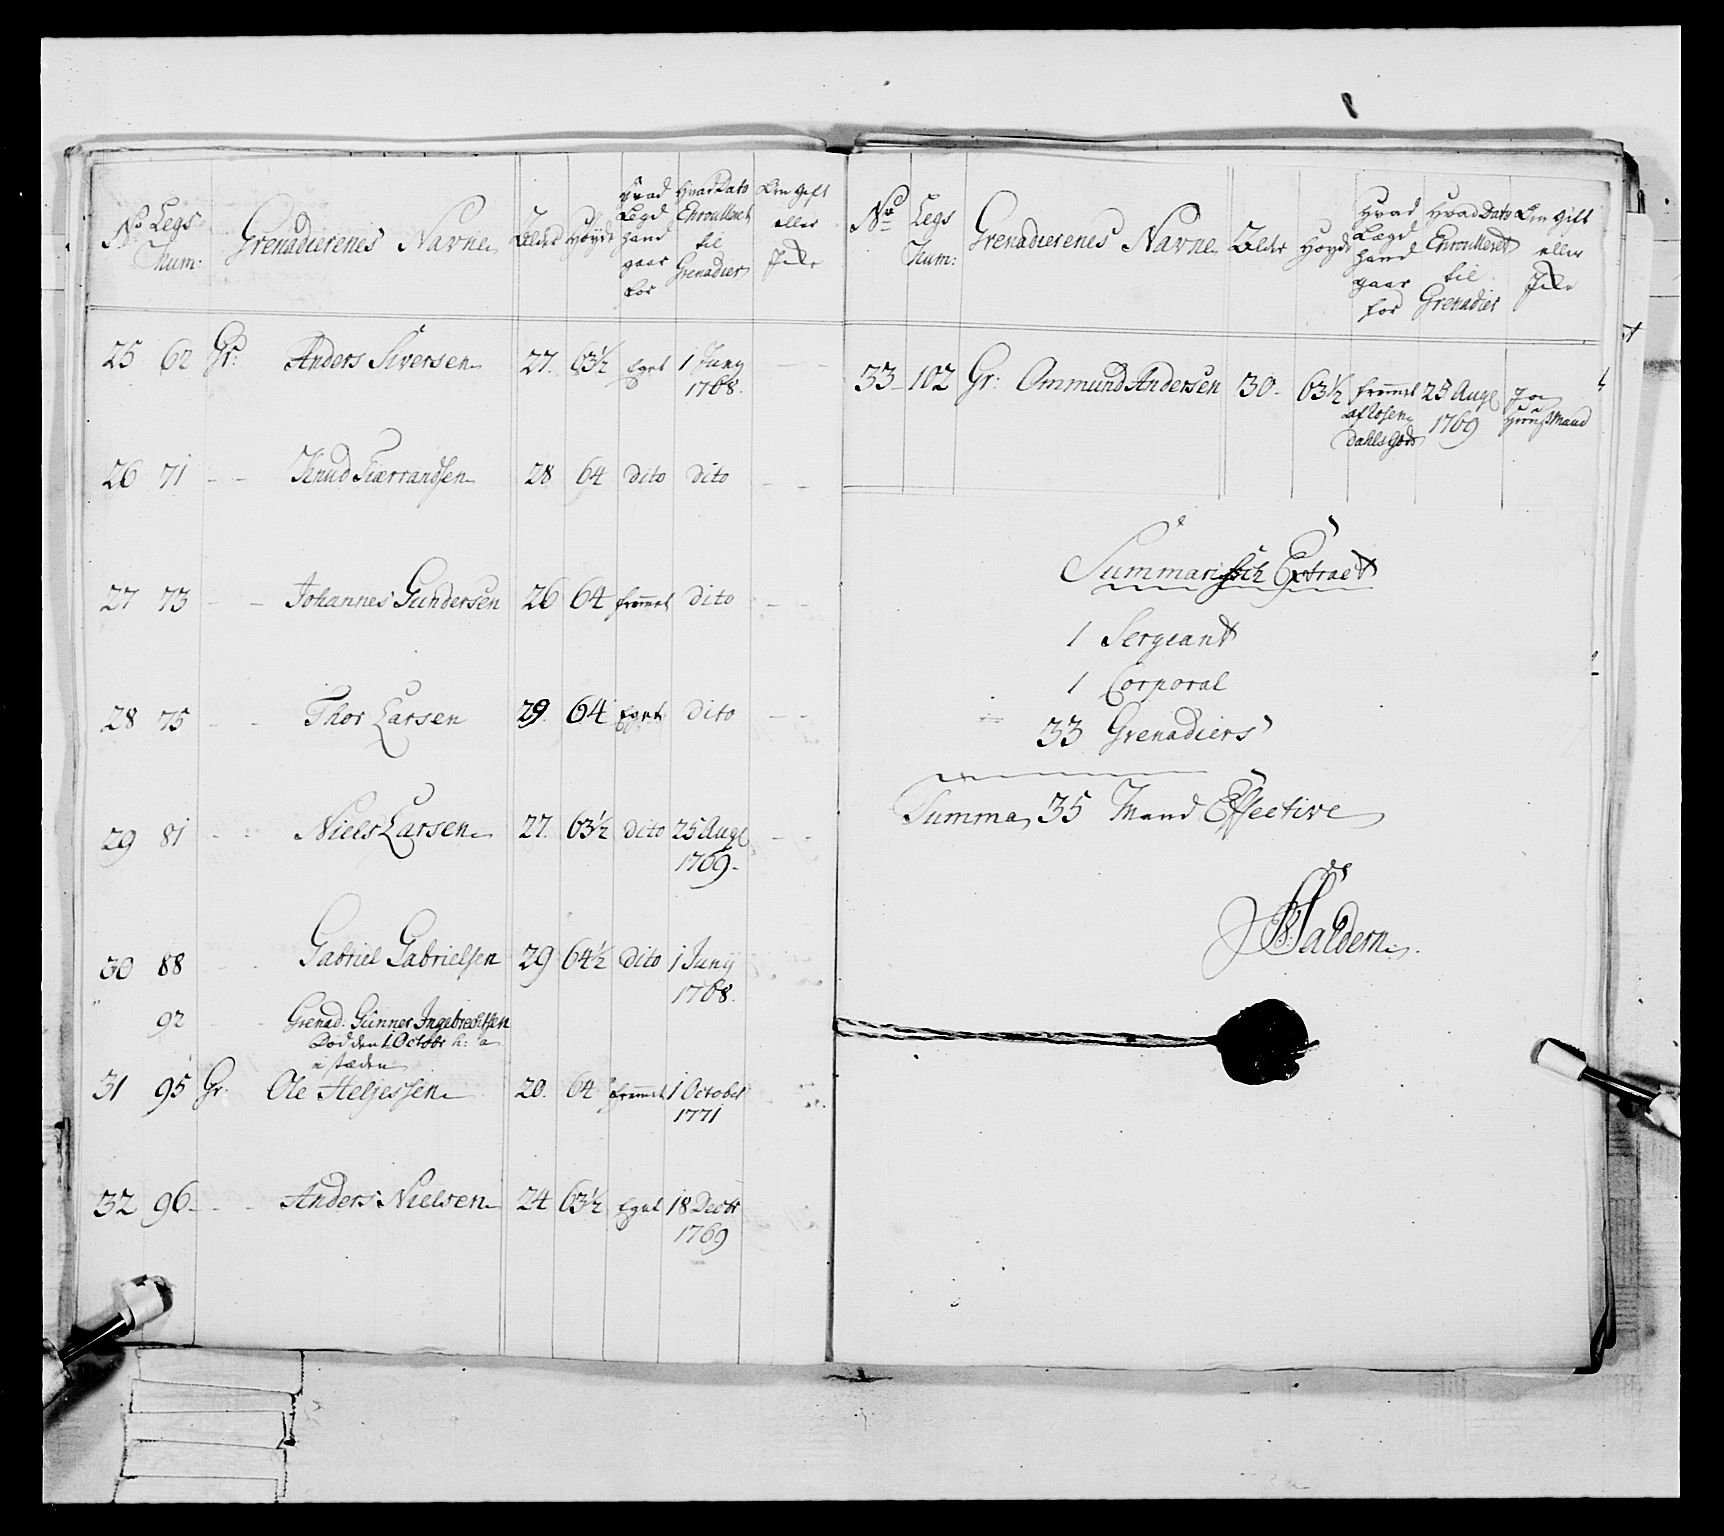 No Legs Num: Grenadierenes Navne Alder Høyde Hvad Legd hand gaar for Hvad Dato Enroulleret til Grenadier Om gift eller Ickе
25 62 Gr: Anders Siversen 27. 63½ Eget 1 Juny 1768. - -
26 71 - - Knud Tiærrandsen 28 64 dito dito - -
27 73 - - Johannes Gundersen 26 64 fremet dito - -
28 75 - - Thor Larsen 29 64 Eget dito - -
29 81 - - Niels Larsen 27. 63½ dito 25 Aug 1769. - -
30 88 - - Gabriel Gabrielsen 29 64½ dito 1 Junij 1768.
92 - Grenad: Gunner Ingebrechtsen
Død den 1 Octobr h: a
i stæden
31 95 Gr. Ole Heljessen 20. 64 fremet 1 October 1771
32 96 - - Anders Nielsen 24 63½ Eget 18 Decbr 1769
No Legs Num: Grenadierenes Navne Alder Høyde Hvad Lægd hand gaar for Hvad Dato Enroulleret til Grenadier Om gift eller
33 102 Gr: Ommund Andersen 30 63½ fremet af Rosendahls Gods 25 Aug 1769 Ja Huusmand
Summarisch Extract
1 Sergeant
1 Corporal
33 Grenadiers
Summa 35 Mand Effective
Saldern.